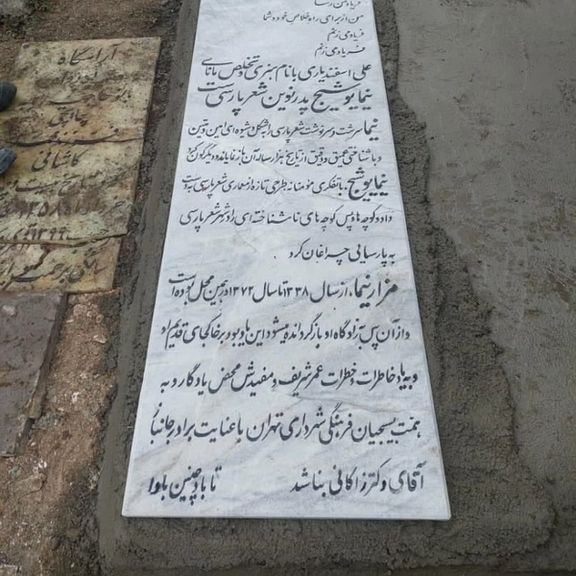 فریاد من رسا
من از برای راه خلاص خود و شما
فریاد می زنم
فریاد می زنم
علی اسفندیاری با نام هنری و تخلص مانای
نیما یوشیج پدر نوین شعر پارسی ست
نیما سرشت و سرنوشت شعر پارسی را به شکل و شیوه ای امین و متین
و با شناختی عمیق و دقیق از تاریخ هزار ساله آن باز نمایاند و دیگرگون کرد
نیما یوشیج، با تفکری مؤمنانه طرحی تازه از معماری شعر پارسی به دست
داد و کوچه ها و پس کوچه های ناشناخته ای را در شهر شعر پارسی
به پارسایی چراغان کرد
مزار نیما، از سال ۱۳۳۸ تا سال ۱۳۷۲ در همین محل بوده است
و از آن پس به زادگاه او بازگردانده میشود این یادبود بر خاکجای قدیم او
و به یاد خاطرات و خطرات عمر شریف و مفیدش محض یادگار و به
همت بسیجیان فرهنگی شهرداری تهران با عنایت برادر جانباز
آقای دکتر زاکانی بنا شد تا باد چنین بادا
آرامگاه
کاشانی
۱۳۹۹